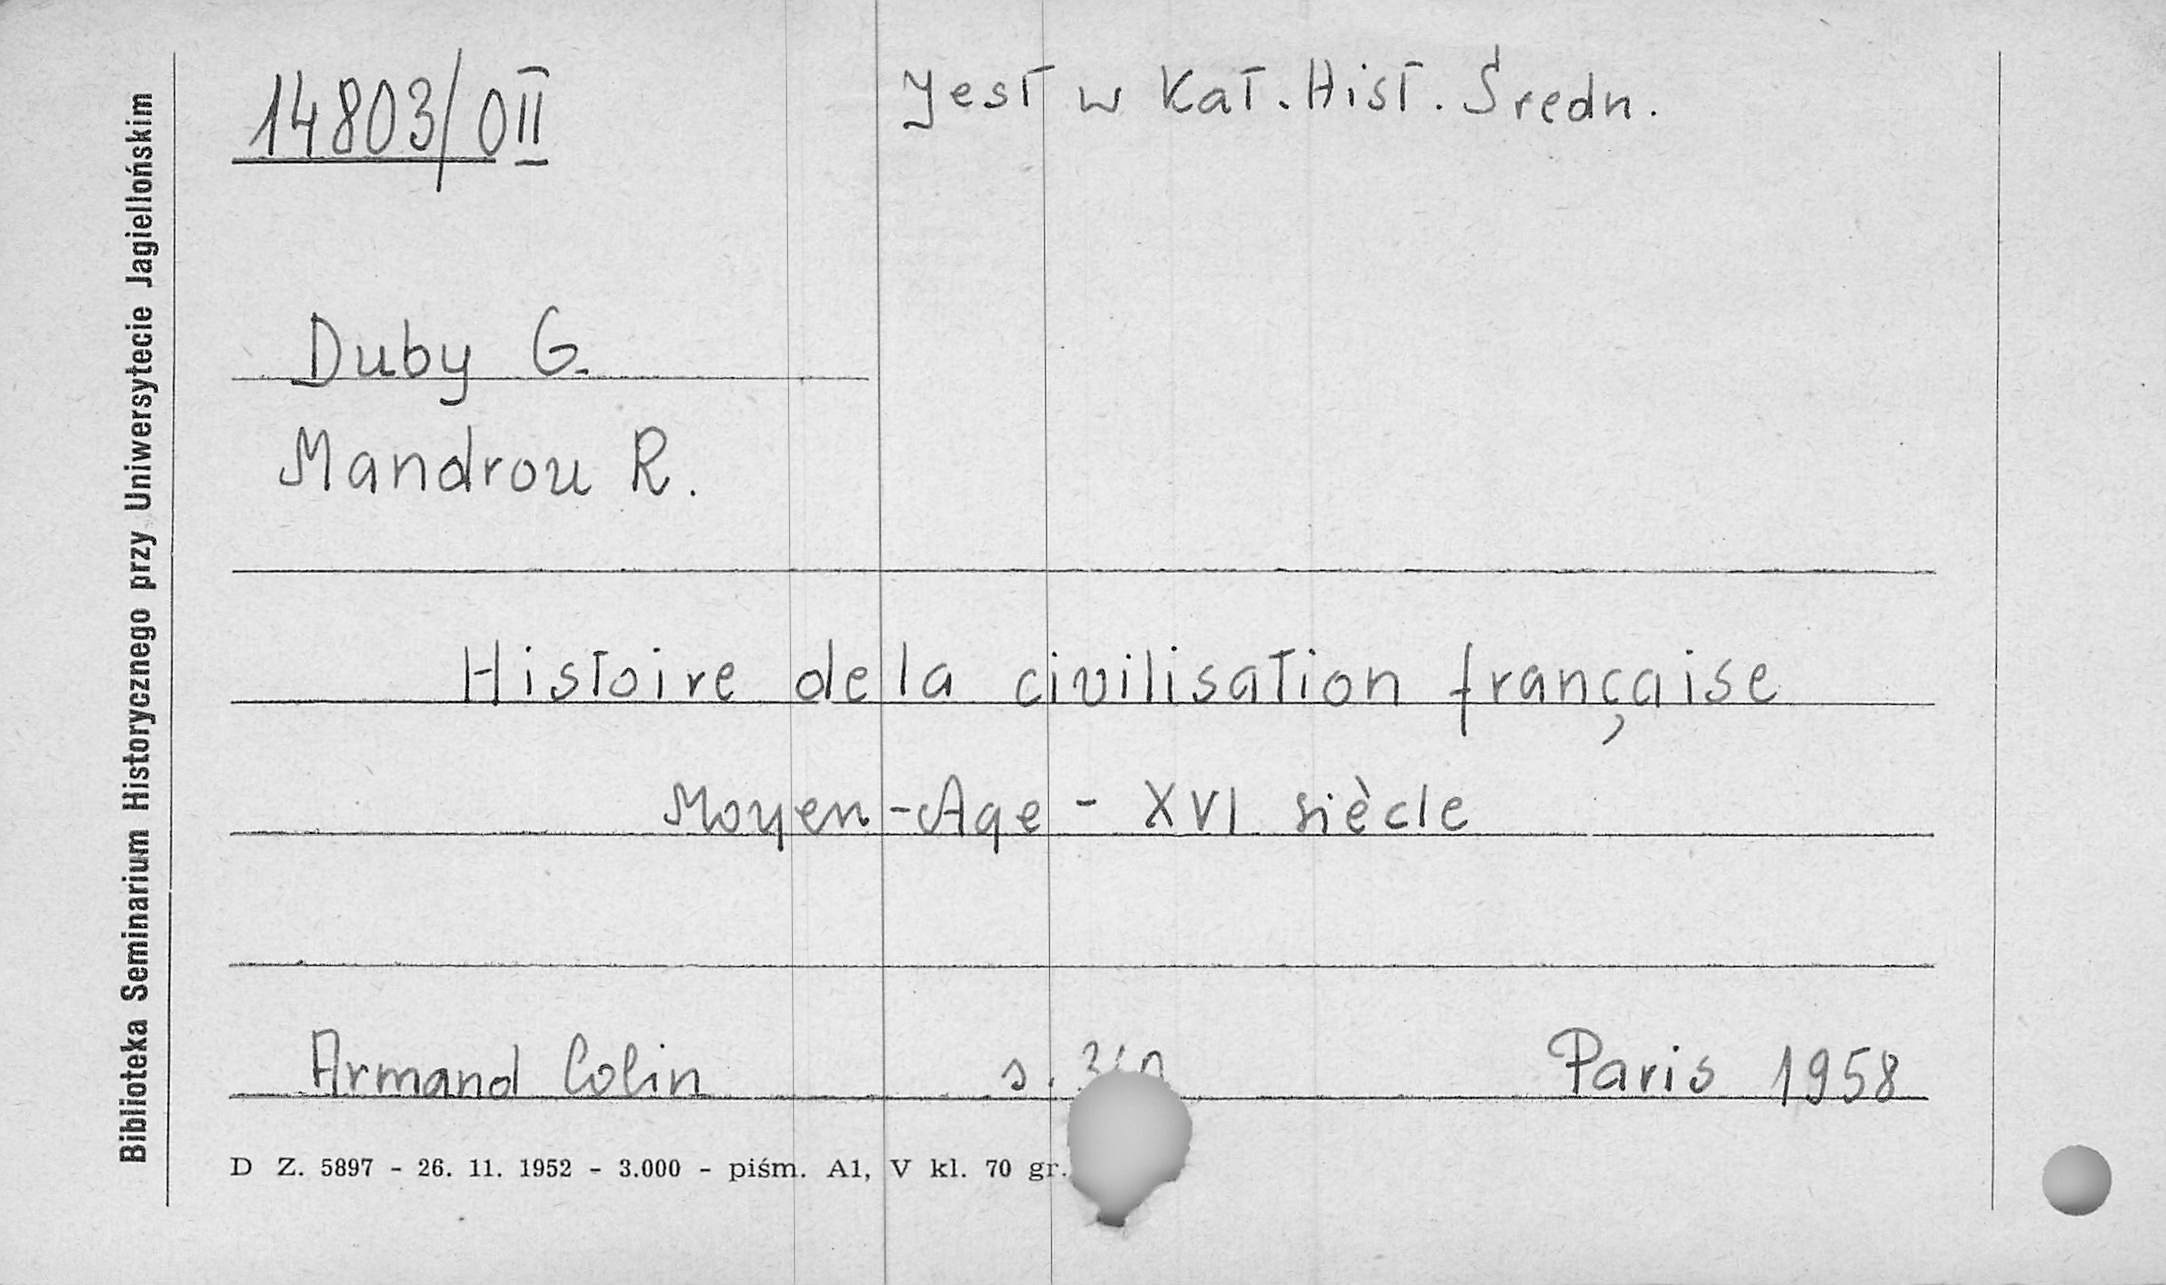 14803/0II
Jest w Kat. Hist. Średn.
Duby G.
Mandrou R.
Histoire de la civilisation française
Moyen-Age - XVI siècle
Armand Colin s. Paris 1958
D Z. 5897 - 26. 11. 1952 - 3.000 - piśm. A1, V kl. 70 gr.
Biblioteka Seminarium Historycznego przy Uniwersytecie Jagiellońskim